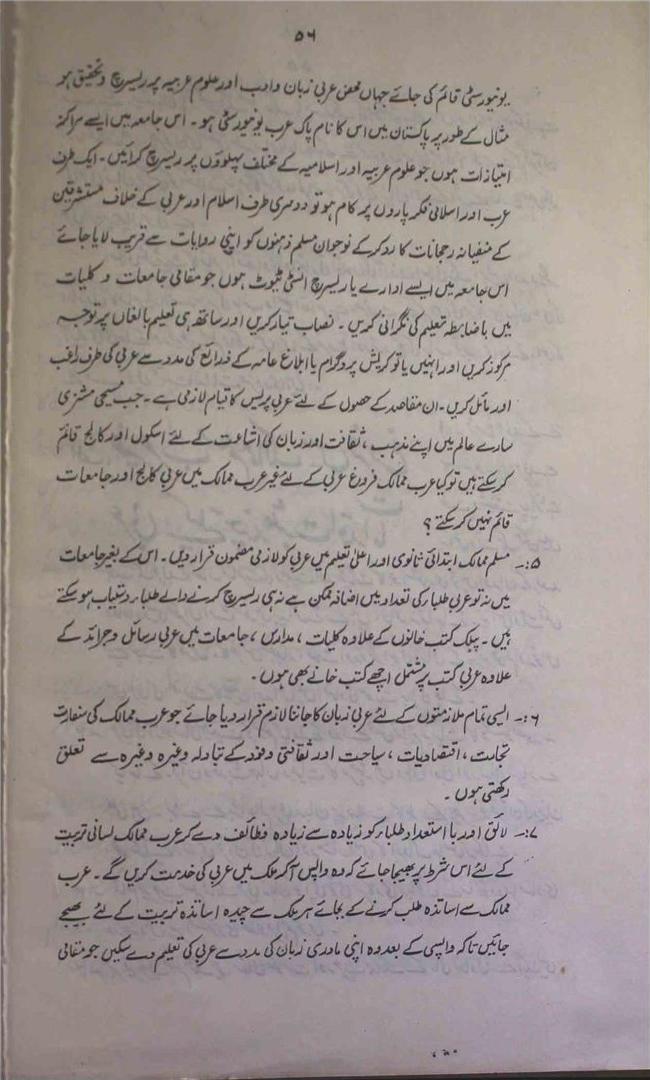 ۵۶
یونیورسٹی قائم کی جائے جہاں محض عربی زبان و ادب اور علوم عربیہ پر ریسرچ و تحقیق ہو
مثال کے طور پر پاکستان میں اس کا نام پاک عرب یونیورسٹی ہو ۔ اس جامعہ میں ایسے مراکز
امتیازات ہوں جو علوم عربیہ اور اسلامیہ کے مختلف پہلوؤں پر ریسرچ کرائیں ۔ ایک طرف
عرب اور اسلامی فکر پاروں پر کام ہو تو دوسری طرف اسلام اور عربی کے خلاف مستشرقین
کے منفیانہ رجحانات کا رد کر کے نوجوان مسلم ذہنوں کو اپنی روایات سے قریب لایا جائے
اس جامعہ میں ایسے ادارے یا ریسرچ انسٹی ٹیوٹ ہوں جو مقامی جامعات و کلیات
میں باضابطہ تعلیم کی نگرانی کریں ۔ نصاب تیار کریں اور ساتھ ہی تعلیم بالغاں پر توجہ
مرکوز کریں اور انہیں یا تو کریش پروگرام یا ابلاغ عامہ کے ذرائع کی مدد سے عربی کی طرف راغب
اور مائل کریں ۔ ان مقاصد کے حصول کے لئے عربی پریس کا قیام لازمی ہے ۔ جب مسیحی مشنری
سارے عالم میں اپنے مذہب ، ثقافت اور زبان کی اشاعت کے لئے اسکول اور کالج قائم
کر سکتے ہیں تو کیا عرب ممالک فروغ عربی کے لئے غیر عرب ممالک میں عربی کالج اور جامعات
قائم نہیں کر سکتے ؟
۵:۔ مسلم ممالک ابتدائی ثانوی اور اعلیٰ تعلیم میں عربی کو لازمی مضمون قرار دیں ۔ اس کے بغیر جامعات
میں نہ تو عربی طلبا کی تعداد میں اضافہ ممکن ہے نہ ہی ریسرچ کرنے والے طلبا دستیاب ہو سکتے
ہیں ۔ پبلک کتب خانوں کے علاوہ کلیات ، مدارس ، جامعات میں عربی رسائل و جرائد کے
علاوہ عربی کتب پر مشتمل اچھے کتب خانے بھی ہوں ۔
۶:۔ ایسی تمام ملازمتوں کے لئے عربی زبان کا جاننا لازم قرار دیا جائے جو عرب ممالک کی سفارت
تجارت ، اقتصادیات ، سیاحت اور ثقافتی وفود کے تبادلہ وغیرہ وغیرہ سے تعلق
رکھتی ہوں ۔
۷:۔ لائق اور با استعداد طلبا کو زیادہ سے زیادہ وظائف دے کر عرب ممالک لسانی تربیت
کے لئے اس شرط پر بھیجا جائے کہ وہ واپس آ کر ملک میں عربی کی خدمت کریں گے ۔ عرب
ممالک سے اساتذہ طلب کرنے کے بجائے ہر ملک سے چیدہ اساتذہ تربیت کے لئے بھیجے
جائیں تاکہ واپسی کے بعد وہ اپنی مادری زبان کی مدد سے عربی کی تعلیم دے سکیں جو مقامی